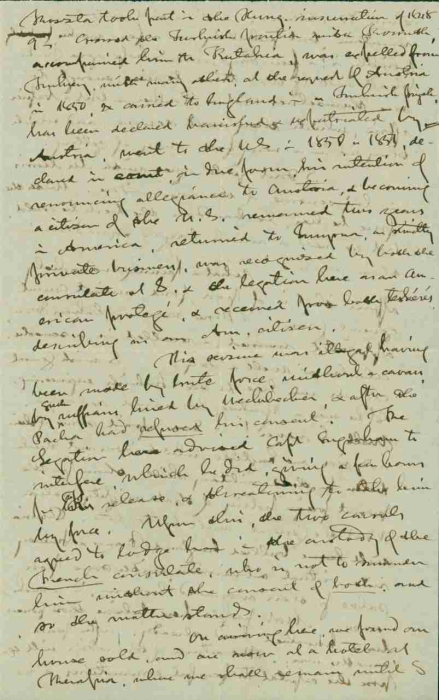 Koszta took part in the Hung. insurrection of 1848
9. crossed the Turkish frontier with Kossuth,
accompanied him to Kutahia, was expelled from
Turkey, with many others, at the request of Austria
in 1850, & carried to England
has been declared banished & expatriated by
Austria, went to the U.S. in
in due form, his intention of
renouncing allegiance to Austria, & becoming
a citizen of the U.S. remained two years
in America, returned to Smyrna, on strictly
private business, was recognized by both the
consulate at S. & the legation here as an Am-
erican protegé, & received from both teskérés
describing him as an Am. citizen.
This seizure was illegal, having
been made by brute force, without a cavass,
by ruffians, hired by & after the
Pacha had refused his consent. The
Legation here advised Capt. Ingraham to
interfere, which he did, giving a few hours
for his release, & threatening to take him
by force. Upon this, the two consuls
agreed to lodge him in the custody of the
French consulate, who is not to surrender
him without the consent of both, and
so the matter stands.
On arriving here, we found our
house sold, and are now at a hotel at
Therapia, where we shall remain until